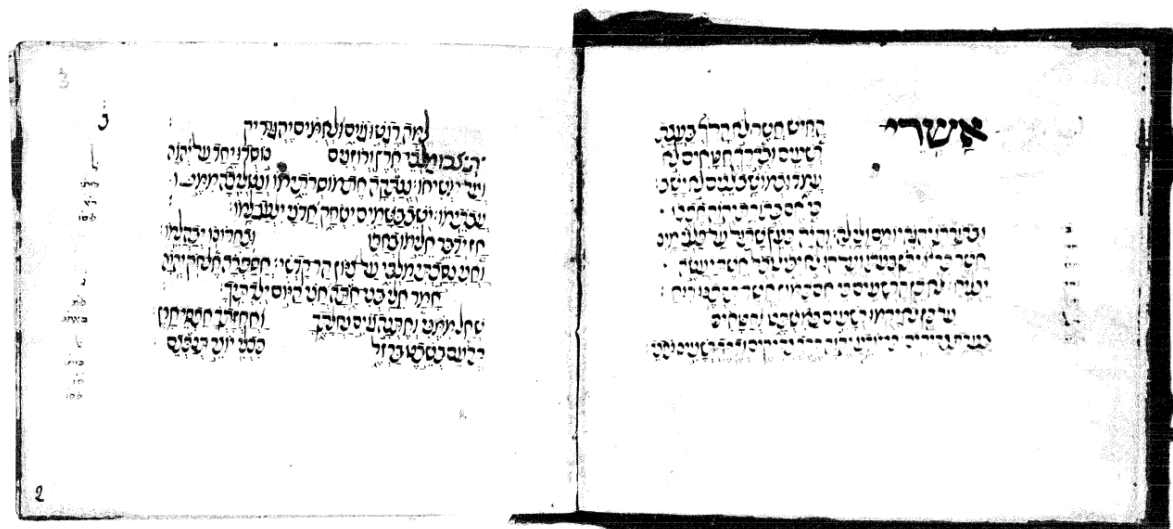 אשרי האיש אשר לא הלך בעצת
רשעים ובדרך חטאים לא
עמד ובמושב לצים לא ישב
כי אם בתורת יהוה חפצו
ובתורתו יהגה יומם ולילה והיה כעץ שתול על פלגי מים
אשר פריו יתן בעתו ועלהו לא יבול וכל אשר יעשה
יצליח לא כן הרשעים כי אם כמוץ אשר תדפנו רוח
על כן לא יקמו רשעים במשפט וחטאים
בעדת צדיקים כי יודע יהוה דרך צדיקים ודרך רשעים תאבד
3
למה רגשו גוים ולאמים יהגו ריק
יתיצבו מלכי ארץ ורוזנים נוסדו יחד על יהוה
ועל משיחו ננתקה את מוסרותימו ונשליכה ממנו
עבתימו יושב בשמים ישחק אדני ילעג למו
אז ידבר אלימו באפו ובחרונו יבהלמו
ואני נסכתי מלכי על ציון הר קדשי אספרה אל חק יהוה
אמר אלי בני אתה אני היום ילדתיך
שאל ממני ואתנה גוים נחלתך ואחזתך אפסי ארץ
תרעם בשבט ברזל ככלי יוצר תנפצם
2